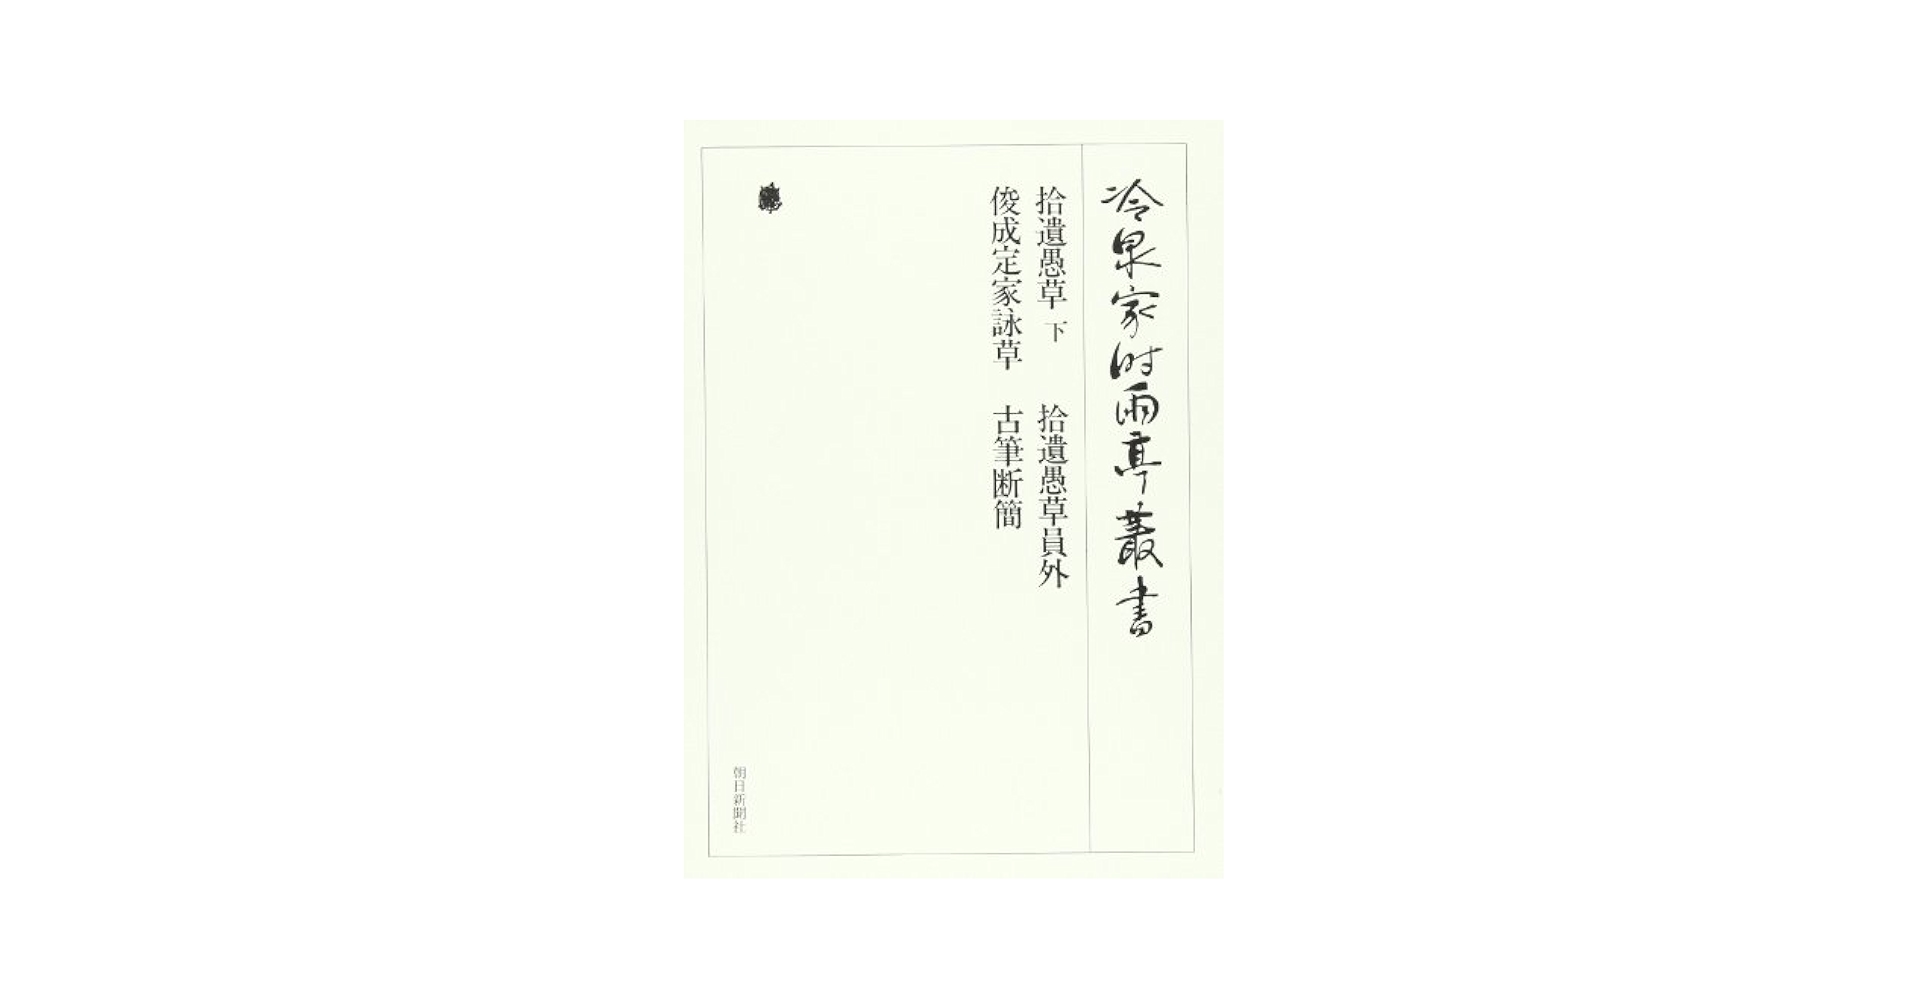 冷泉家時雨亭叢書
拾遺愚草 下 拾遺愚草員外
俊成定家詠草 古筆断簡
朝日新聞社